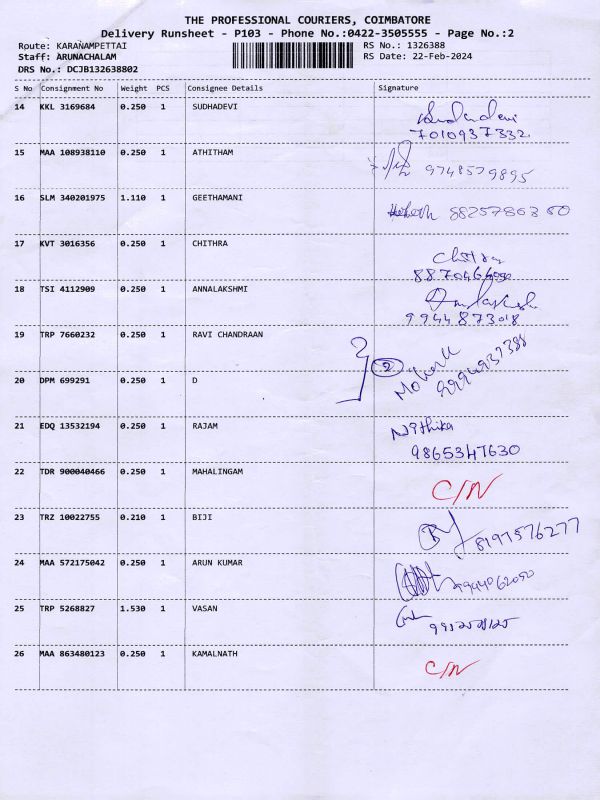 THE PROFESSIONAL COURIERS, COIMBATORE
Delivery Runsheet - P103 - Phone No.:0422-3505555 - Page No.:2
Route: KARANAMPETTAI RS No.: 1326388
Staff: ARUNACHALAM RS Date: 22-Feb-2024
DRS No.: DCJB132638802
S No Consignment No Weight PCS Consignee Details Signature
14 KKL 3169684 0.250 1 SUDHADEVI
7010937332
15 MAA 108938110 0.250 1 ATHITHAM 9748579895
16 SLM 340201975 1.110 1 GEETHAMANI
17 KVT 3016356 0.250 1 CHITHRA
18 TSI 4112909 0.250 1 ANNALAKSHMI
9944873018
19 TRP 7660232 0.250 1 RAVI CHANDRAAN
2
20 DPM 699291 0.250 1 D
21 EDQ 13532194 0.250 1 RAJAM Nithika
9865347630
22 TDR 900040466 0.250 1 MAHALINGAM C/N
23 TRZ 10022755 0.210 1 BIJI 8197576277
24 MAA 572175042 0.250 1 ARUN KUMAR
25 TRP 5268827 1.530 1 VASAN
26 MAA 863480123 0.250 1 KAMALNATH C/N